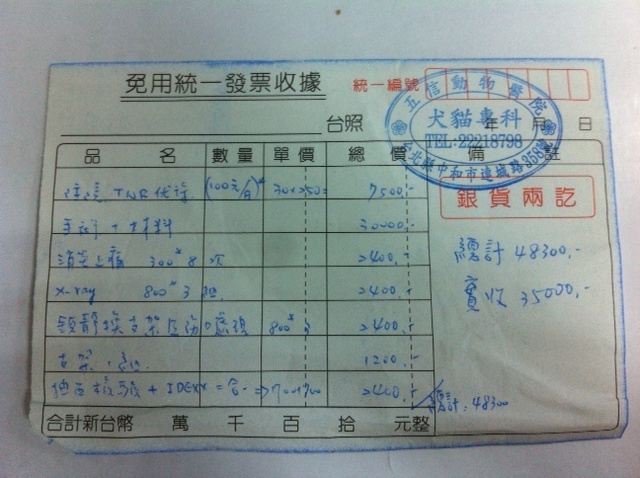 免用統一發票收據
統一編號
五信動物醫院
犬貓專科
TEL:22218798
台北縣中和市連城路358號
台照 年 月 日
品名 數量 單價 總價 備註
住院 TNR (100元/日) 30 250 7500.-
銀貨兩訖
手術+材料 30000.-
消炎止痛 300*8 次 2400.-
總計 48300.-
x-ray 800*3 2400.-
實收 35000.-
800*3 2400.-
支架 1200.-
+ IDEXX 合一 2400.-
總計:48300
合計新台幣 萬 千 百 拾 元整